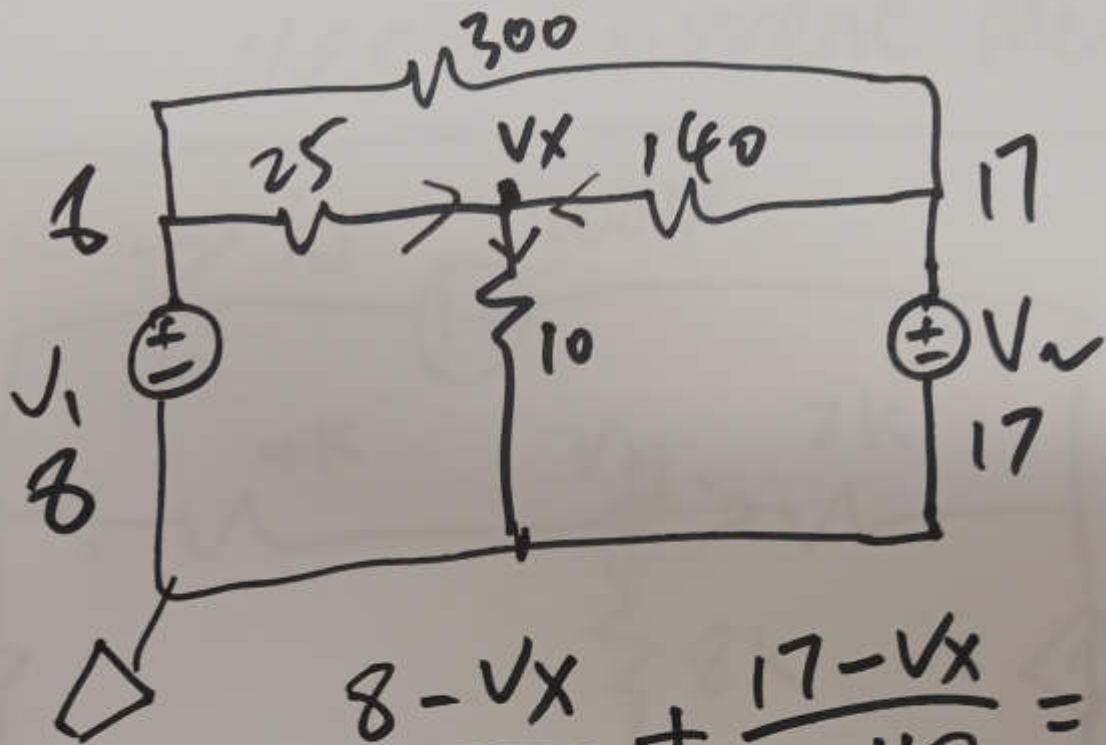 300
25 VX 140
8 17
+ - 10 + - V2
V1 17
8
8 - VX + 17 - VX =